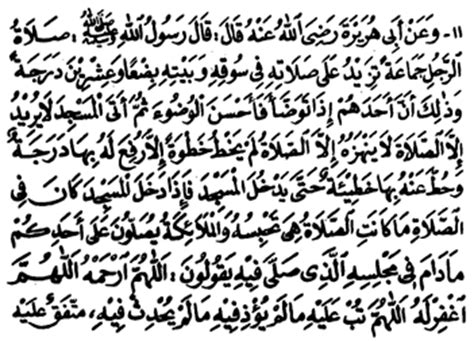 ١١ـ وَعَنْ أَبِى هُرَيْرَةَ رَضِىَ اللهُ عَنْهُ قَالَ: قَالَ رَسُولُ اللهِ ﷺ: صَلَاةُ
الرَّجُلِ جَمَاعَةً تَزِيْدُ عَلَى صَلَاتِهِ فِى سُوقِهِ وَبَيْتِهِ بِضْعًا وَعِشْرِيْنَ دَرَجَةً
وَذٰلِكَ أَنَّ أَحَدَهُمْ إِذَا تَوَضَّأَ فَأَحْسَنَ الْوُضُوءَ ثُمَّ أَتَى الْمَسْجِدَ لَا يُرِيْدُ
إِلَّا الصَّلَاةَ لَا يَنْهَزُهُ إِلَّا الصَّلَاةُ لَمْ يَخْطُ خُطْوَةً إِلَّا رُفِعَ لَهُ بِهَا دَرَجَةٌ
وَحُطَّ عَنْهُ بِهَا خَطِيْئَةٌ حَتَّى يَدْخُلَ الْمَسْجِدَ فَإِذَا دَخَلَ الْمَسْجِدَ كَانَ فِى
الصَّلَاةِ مَا كَانَتِ الصَّلَاةُ هِىَ تَحْبِسُهُ وَالْمَلَائِكَةُ يُصَلُّوْنَ عَلَى أَحَدِكُمْ
مَادَامَ فِى مَجْلِسِهِ الَّذِى صَلَّى فِيْهِ يَقُوْلُوْنَ: اَللّٰهُمَّ ارْحَمْهُ اَللّٰهُمَّ
اغْفِرْ لَهُ اَللّٰهُمَّ تُبْ عَلَيْهِ مَا لَمْ يُؤْذِ فِيْهِ مَا لَمْ يُحْدِثْ فِيْهِ، مُتَّفَقٌ عَلَيْهِ